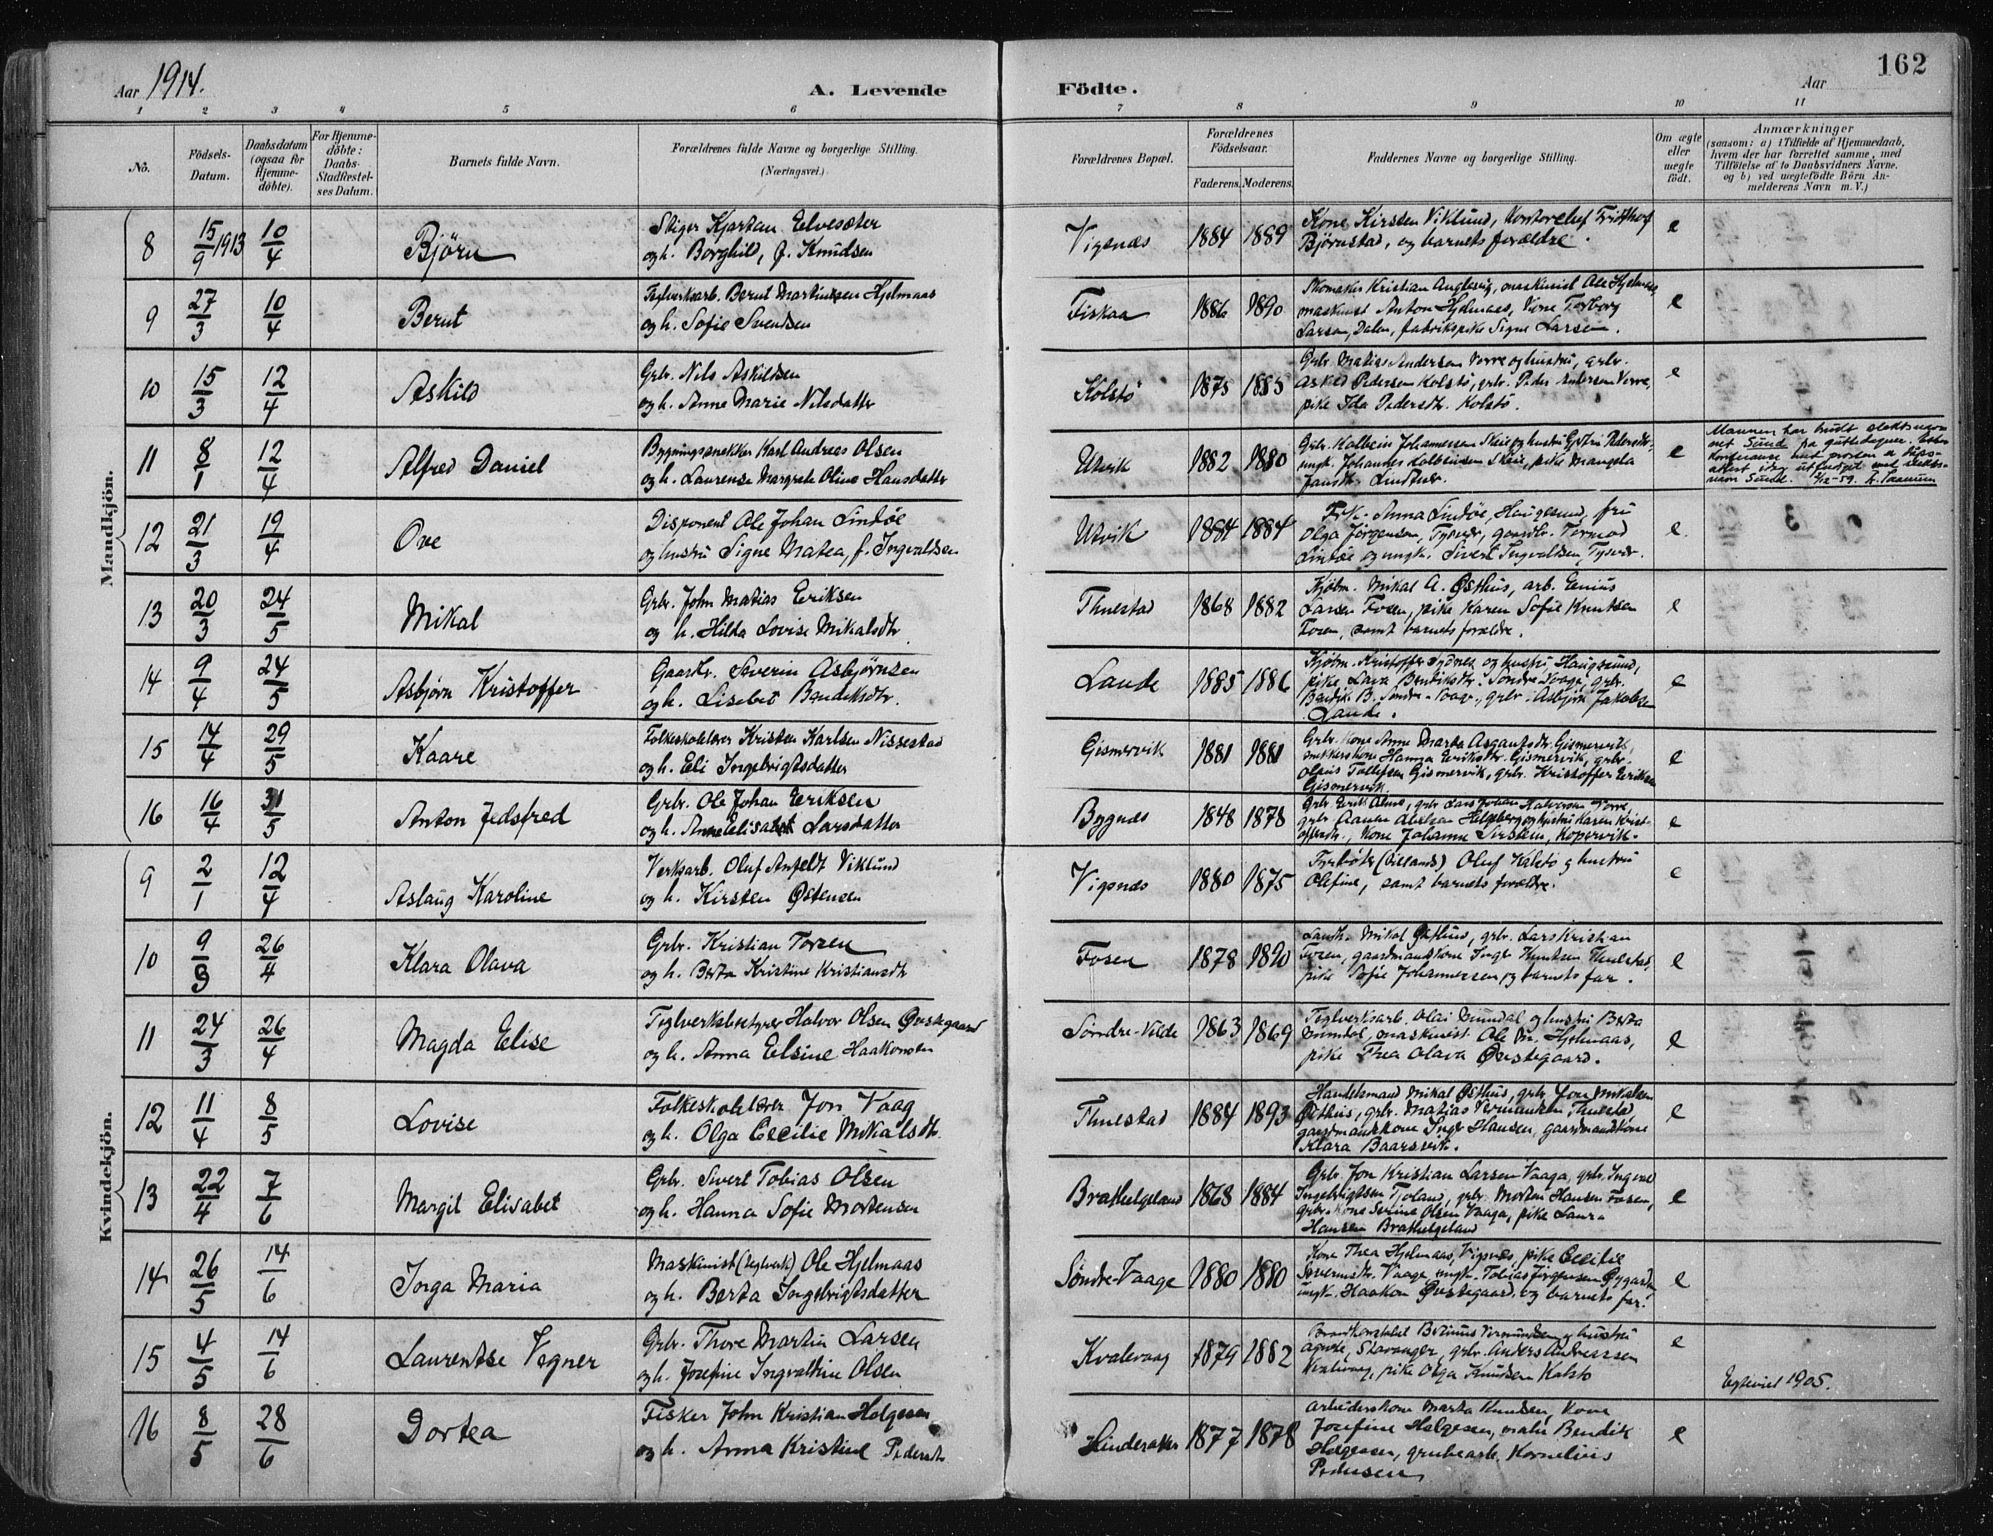 Aar 1914.
A. Levende Födte.
Aar
162
1 2 3 4 5 6 7 8 9 10 11
No.
Födsels-Datum.
Daabsdatum (ogsaa for Hjemme-döbte).
For Hjemme-döbte: Daabs-Stadfestel-ses Datum.
Barnets fulde Navn.
Forældrenes fulde Navne og borgerlige Stilling. (Næringsvei.)
Forældrenes Bopæl.
Forældrenes Födselsaar.
Faderens. Moderens.
Faddernes Navne og borgerlige Stilling.
Om ægte eller uegte födt.
Anmærkninger
(saasom: a) i Tilfælde af Hjemmedaab, hvem der har forrettet samme, med Tilföielse af to Daabsvidners Navne. og b) ved uægtefödte Börn An-melderens Navn m. V.)
Mandkjön.
8 15/9 1913 10/4 Bjørn
Stiger Kjartan Elvesæter
og h. Borghild, f. Knudsen
Vigsnæs 1884 1889
Kone Kirsten Viklund, kontorchef Fritthof
Bjørnstad, og barnets forældre.
e
9 27/3 10/4 Bernt
Teglverksarb. Bernt Martinsen Hjelmaas
og h. Sofie Svendsen
Fiskaa 1886 1890
Kristian maskinist Ole Hjelmaas,
maskinist Anton Hjelmaas, Kone Torborg
Larsen, Dalen, fabrikspike Signe Larsen.
e
10 15/3 12/4 Askild
Grbr. Nils Askildsen
og h. Anne Marie Nilsdatter
Kolstø 1875 1885
Grbr. Matias Andersen Vorre og hustru, grbr.
Askild Pedersen Kolstø, grbr. Peder Andersen Vorre,
pike Ida Pedersdtr. Kolstø.
e
11 8/1 12/4 Alfred Daniel
Bygningssnekker Karl Andreas Olsen
og h. Laurense Margrete Oline Hansdatter
Utvik 1882 1880
Grbr. Kolbein Johannessen Skeie og hustru Pedersdtr.,
ungk. Johannes Kolbeinsen Skeie, pike
e
Mannen har brukt slektsnav-
net Sunde
navn Sunde. 1/12-59.
12 21/3 19/4 Ove
Disponent Ole Johan Lindøe
og hustru Signe Matea, f. Ingvaldsen
Utvik 1884 1884
Frk. Anna Lindøe, Haugesund, fru
Olga Jørgensen, Tysvær, gaardbr. Tormod
Lindøe og ungk. Sivert Ingvaldsen, Tysvær.
e.
13 20/3 24/5 Mikal
Grbr. John Matias Eriksen
og h. Hilda Lovise Mikalsdtr.
Thuestad 1868 1882
Kjøbm. Mikal A. Østhus, arb. Enius
Larsen Fosen, pike Karen Sofie Knutsen
Fosen, samt barnets forældre.
e
14 9/4 24/5 Asbjørn Kristoffer
Gaardbr. Severin Asbjørnsen
og h. Lisebet Bendiksdtr.
Lande 1885 1886
Kjøbm. Kristoffer Sydnes og hustru, Haugesund,
pike Lava Bendiksdtr. Søndre Vaage, grbr.
Bendik B. Søndre-Vaage, grbr. Asbjørn Jakobsen
Lande.
e
15 14/4 29/5 Kaare
Folkeskolelærer Kristen Karlsen Nissestad
og h. Eli Ingebrigtsdatter
Gismervik 1881 1881
Grbr. kone Anne Marta Asgautsdtr. Gismervik,
snekkerskone Hanna Eriksdtr. Gismervik, grbr.
Tollefsen Gismervik, grbr. Kristoffer Eriksen
Gismervik.
e
16 16/4 31/5 Anton Jedsfred
Grbr. Ole Johan Eriksen
og h. Anne Elisabet Larsdatter
Bygnæs 1848 1878
Grbr. Erik Olsen, grbr. Lars Johan Halvorsen Vorre,
grbr. og hustru Karen Krist-
offersdtr., Kone Johanne Kopervik.
e
Kvindekjön.
9 2/1 12/4 Aslaug Karoline
Verksarb. Oluf Anfeldt Viklund
og h. Kirsten Østensen
Vigsnæs 1880 1875
Fyrbøter Oluf Kalstø og hustru
Olefine, samt barnets forældre.
e
10 9/3 26/4 Klara Olava
Grbr. Kristian Torsen
og h. Berta Kristine Kristiansdtr
Fosen 1878 1890
Landh. Mikal Østhus, grbr. Lars Kristian
Fosen, gaardmandskone Inger Knutsen Thuestad,
pike Sofie Johannessen og barnets far.
e
11 24/3 26/4 Magda Elise
Teglverksbestyrer Halvor Olsen Øvstegaard
og h. Anna Elsine Haakonsen
Søndre-Velde 1863 1869
Teglverksarb. Olai Mundal og hustru Berta
Mundal, maskinist Ole M. Hjelmaas,
pike Thea Olava Øvstegaard.
e
12 11/4 8/5 Lovise
Folkeskolelærer Jon Vaag
og h. Olga Cecilie Mikalsdtr.
Thuestad 1884 1893
Handelsmand Mikal Østhus, grbr. Jon Mikalsen
Østhus, grbr. Matias Vermundsen, Thuestad,
gaardmandskone Inger Hansen, gaardmandskone
Klara Baarsvik.
e
13 22/4 7/6 Margit Elisabet
Grbr. Sivert Tobias Olsen
og h. Hanna Sofie Mortensen
Brathelgeland 1868 1884
Grbr. Jon Kristian Larsen Vaaga, grbr. Ingvar
Ingebrigtsen Tjoland, grbr. Morten Hansen Fosen,
grbr. kone Serine Olsen Vaaga, pike Laura
Hansen Brathelgeland
e
14 26/5 14/6 Inga Maria
Maskinist (teglverk) Ole Hjelmaas
og h. Berta Ingebrigtsdatter
Søndre-Vaage 1880 1880
Kone Thea Hjelmaas, Vigsnæs, pike Cecilie
Severinsdtr. Vaage, ungk. Tobias Jørgensen Øygarden,
ungk. Haakon Øvstegaard, og barnets far.
e
15 4/5 14/6 Laurentse Vegner
Grbr. Thore Martin Larsen
og h. Josefine Ingvaldine Olsen
Kvalevaag 1879 1882
Brandkonstabel Vermundsen og hustru
Stavanger, grbr. Anders Andreassen
Kvalevaag, pike Olga Knudsen Kalstø
e
Egteviet 1905.
16 8/5 28/6 Dortea
Fisker John Kristian Helgesen
og h. Anna Kristine Pedersdtr
Hinderaker 1877 1878
Arbeiderskone Marta Knudsen, Kone
Josefine Helgesen, Bendik
Helgesen, grubearb. Kornelius
Pedersen.
e